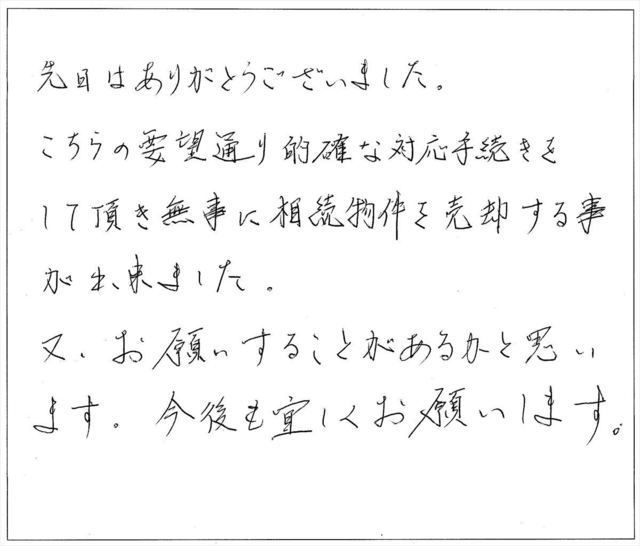 先日はありがとうございました。
こちらの要望通り的確な対応手続きを
して頂き無事に相続物件を売却する事
が出来ました。
又、お願いすることがあるかと思い
ます。今後も宜しくお願いします。